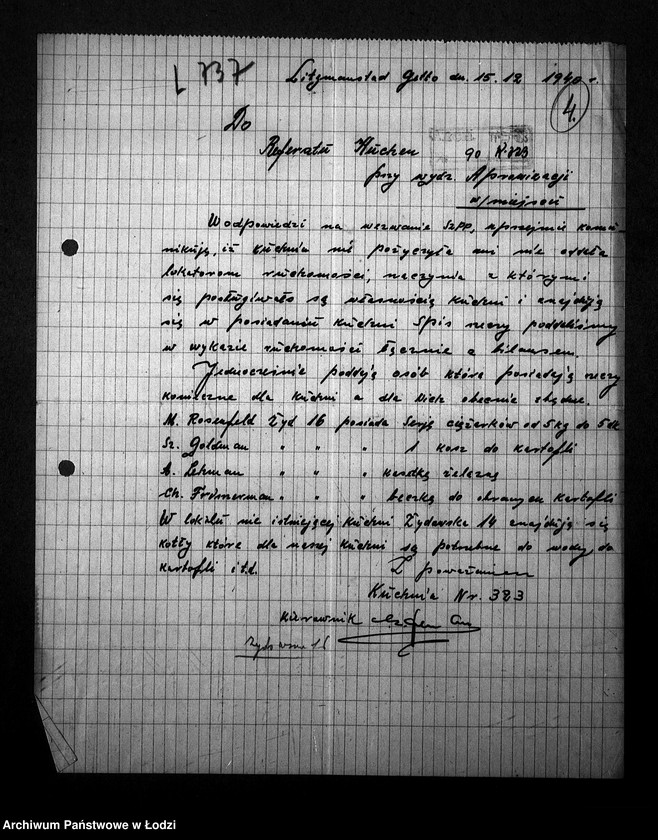 L 737
Litzmanstad Getto dn. 15. 12 1940 r.
4.
Do
Referatu Kuchen
przy wydz. Aprowizacji
w/miejscu
W odpowiedzi na wezwanie SzPP, uprzejmie komu-
nikuję, iż kuchnia nie pożyczyła ani nie oddała
lokatorom ruchomości, naczynia z którymi
się posługiwało są własnością kuchni i znajdują
się w posiadaniu kuchni Spis rzeczy poddaliśmy
w wykazie ruchomości łącznie z bilansem.
Jednocześnie poddaję osób które posiadają rzeczy
konieczne dla kuchni a dla Nich obecnie zbędne.
M. Rosenfeld Żyd 16 posiada Serję ciężarków od 5 kg do 5 dk
Sz. Goldman " " " 1 kosz do kartofli
A. Lehman " " " żelazną
Ch. Frymerman " " " beczkę do obranych kartofli
W lokalu nie istniejącej kuchni Żydowska 14 znajdują się
kotły które dla naszej kuchni są potrzebne do wody do
kartofli i t.d. Z poważaniem
Kuchnia Nr. 323
Kierownik
Żydowska 16
Archiwum Państwowe w Łodzi